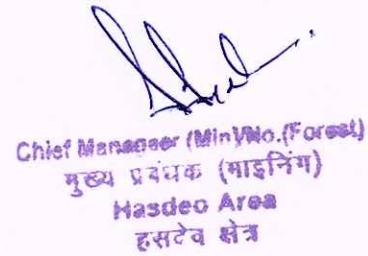 Chief Manageer (Min)/No.(Forest)
मुख्य प्रबंधक (माइनिंग)
Hasdeo Area
हसदेव क्षेत्र